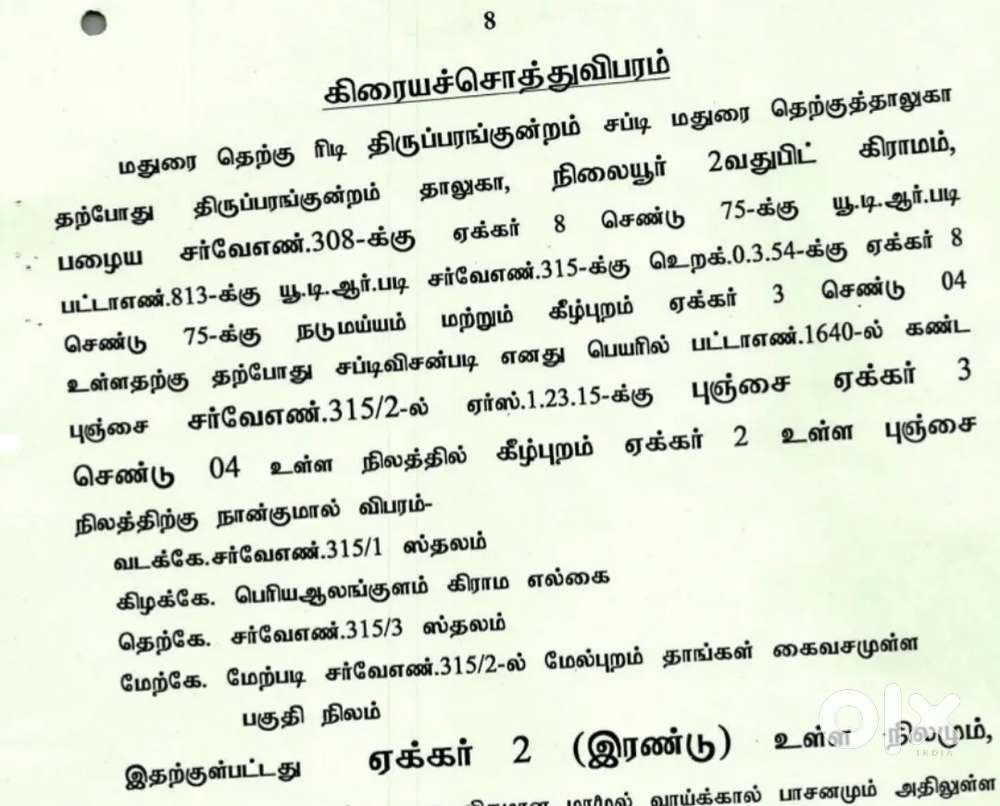 8
கிரையச்சொத்துவிபரம்
மதுரை தெற்கு ரிடி திருப்பரங்குன்றம் சப்டி மதுரை தெற்குத்தாலுகா
தற்போது திருப்பரங்குன்றம் தாலுகா, நிலையூர் 2வதுபிட் கிராமம்,
பழைய சர்வேஎண்.308-க்கு ஏக்கர் 8 செண்டு 75-க்கு யூ.டி.ஆர்.படி
பட்டாஎண்.813-க்கு யூ.டி.ஆர்.படி சர்வேஎண்.315-க்கு உறக்.0.3.54-க்கு ஏக்கர் 8
செண்டு 75-க்கு நடுமய்யம் மற்றும் கீழ்புறம் ஏக்கர் 3 செண்டு 04
உள்ளதற்கு தற்போது சப்டிவிசன்படி எனது பெயரில் பட்டாஎண்.1640-ல் கண்ட
புஞ்சை சர்வேஎண்.315/2-ல் ஏர்ஸ்.1.23.15-க்கு புஞ்சை ஏக்கர் 3
செண்டு 04 உள்ள நிலத்தில் கீழ்புறம் ஏக்கர் 2 உள்ள புஞ்சை
நிலத்திற்கு நான்குமால் விபரம்-
வடக்கே.சர்வேஎண்.315/1 ஸ்தலம்
கிழக்கே. பெரியஆலங்குளம் கிராம எல்கை
தெற்கே. சர்வேஎண்.315/3 ஸ்தலம்
மேற்கே. மேற்படி சர்வேஎண்.315/2-ல் மேல்புறம் தாங்கள் கைவசமுள்ள
பகுதி நிலம்
இதற்குள்பட்டது ஏக்கர் 2 (இரண்டு) உள்ள நிலமும்,
வாய்க்கால் பாசனமும் அதிலுள்ள
olx
INDIA